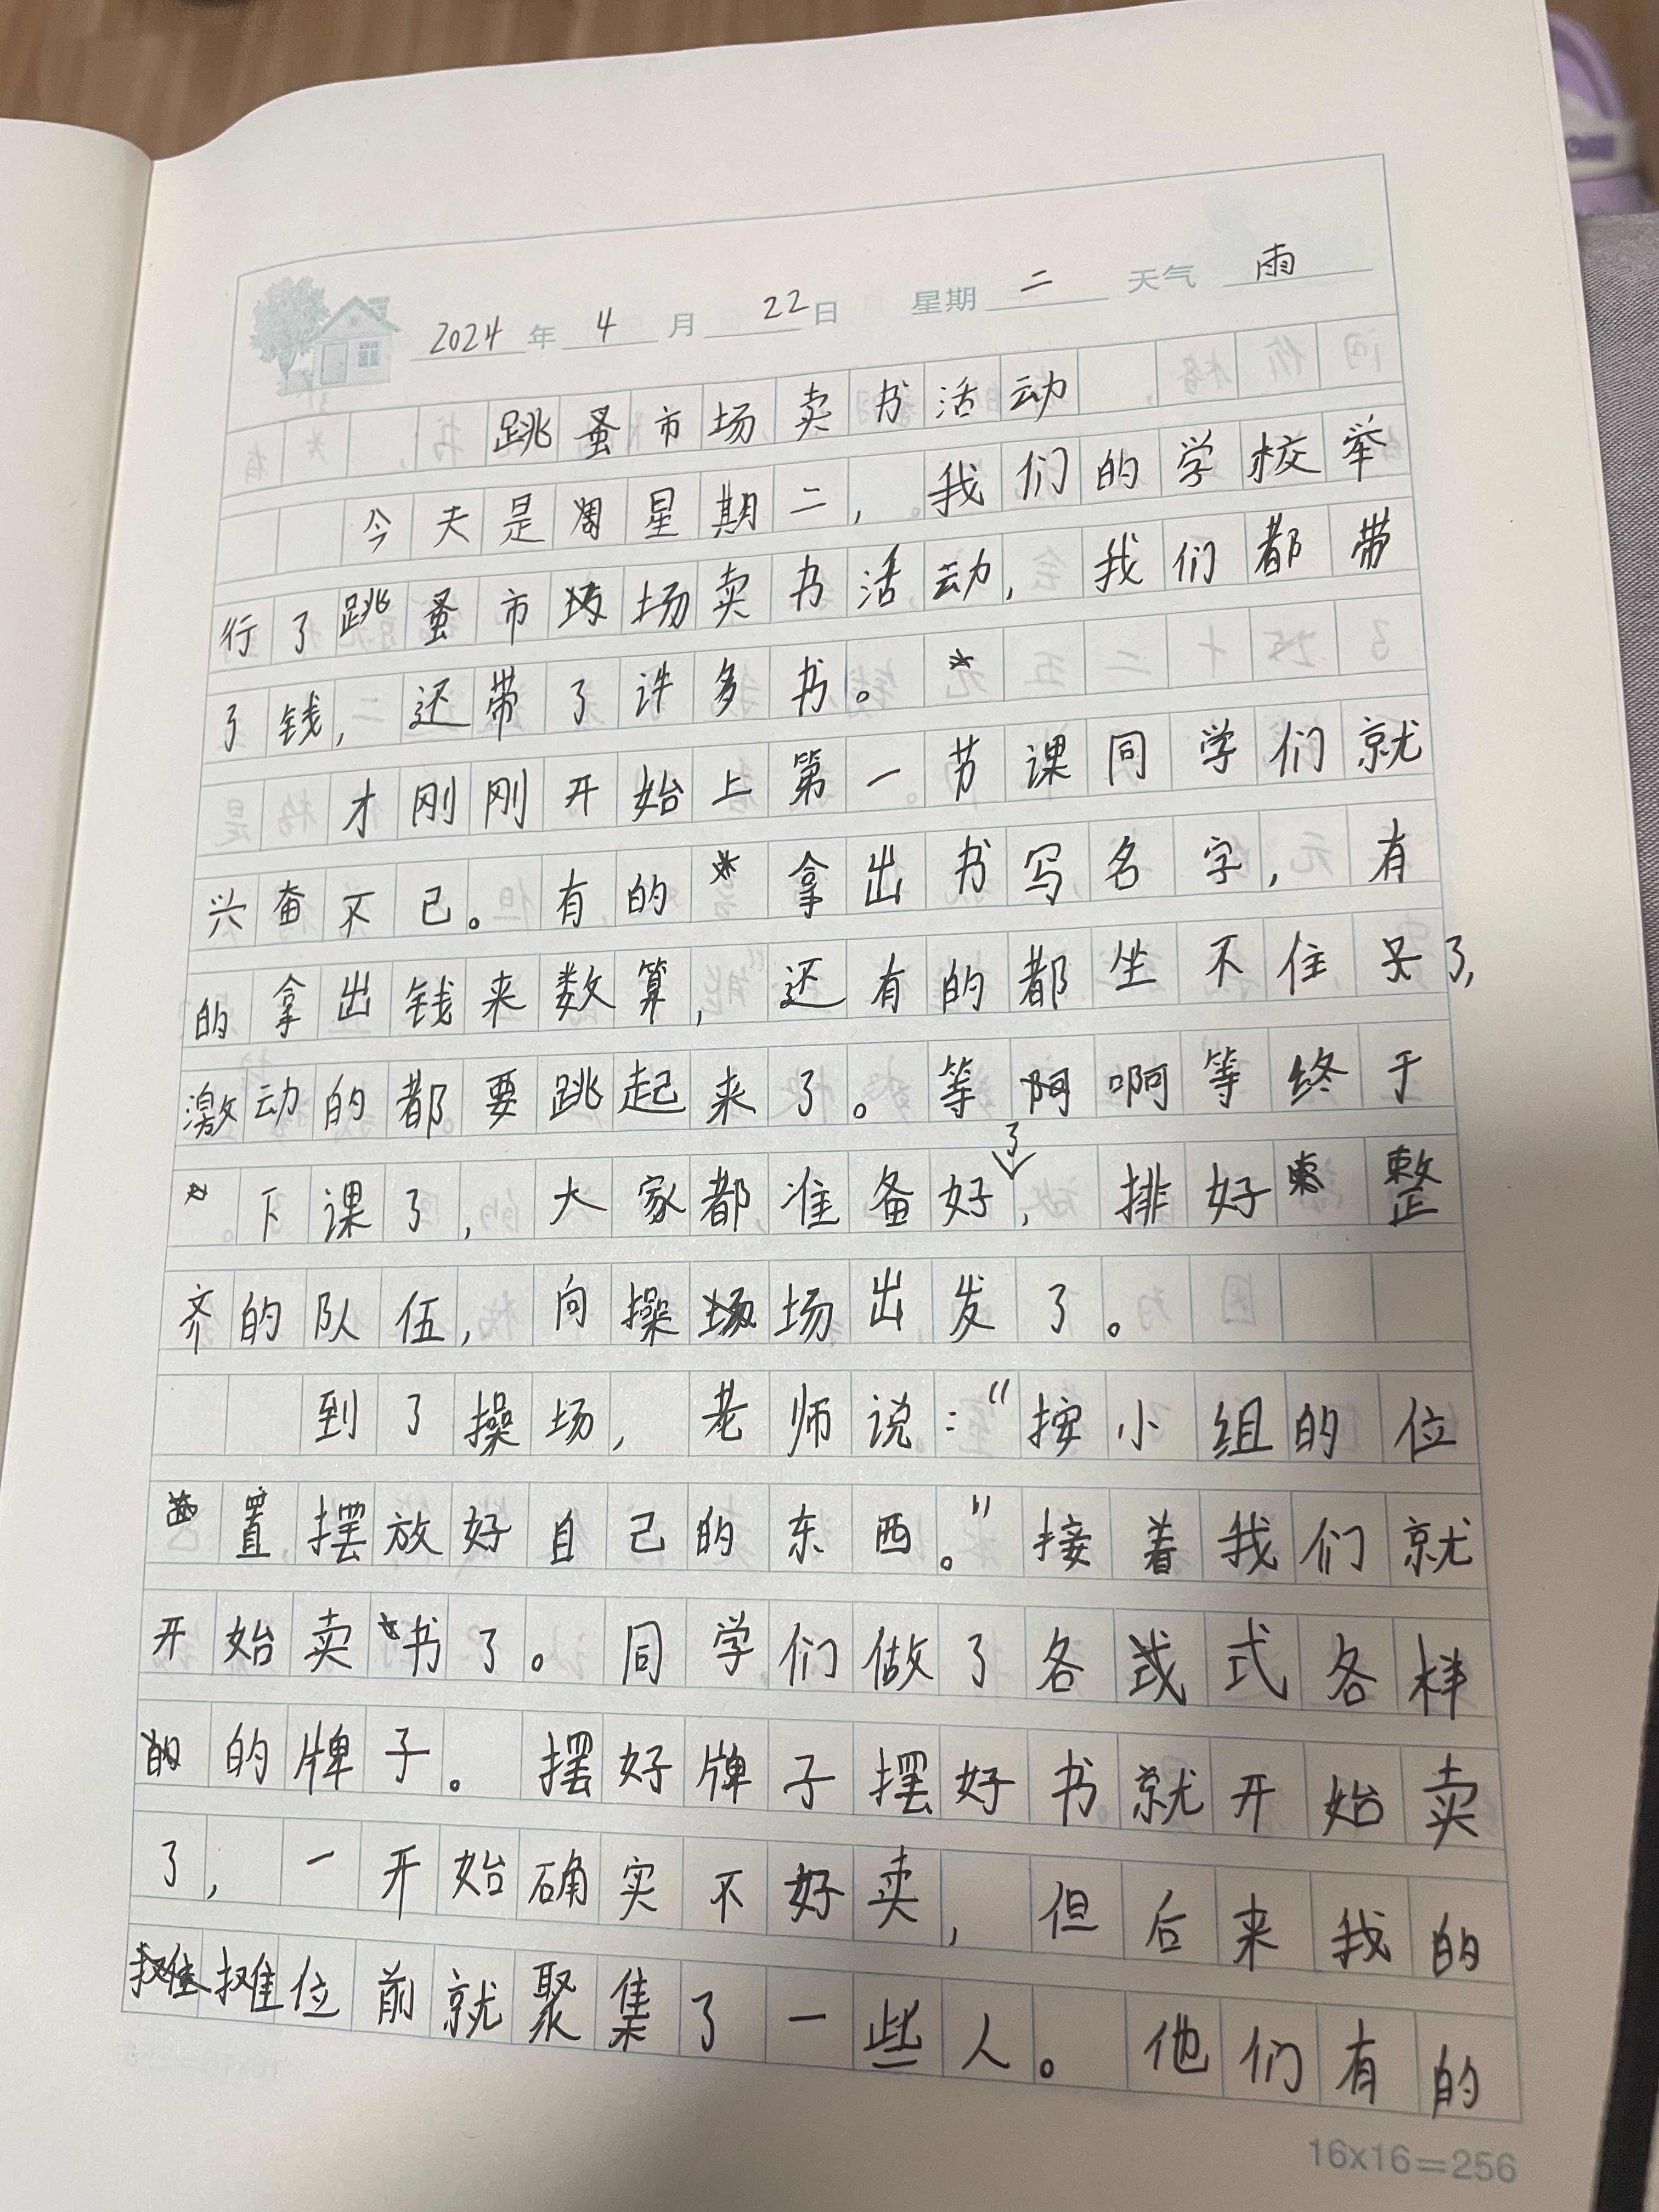 2024年4月22日 星期二 天气 雨
跳蚤市场卖书活动
今天是星期二，我们的学校举
行了跳蚤市场卖书活动，我们都带
了钱，还带了许多书。
才刚刚开始上第一节课同学们就
兴奋不已。有的拿出书写名字，有
的拿出钱来数算，还有的都坐不住了，
激动的都要跳起来了。等啊等终于
下课了，大家都准备好了，排好整
齐的队伍，向操场出发了。
到了操场，老师说：“按小组的位
置摆放好自己的东西。”接着我们就
开始卖书了。同学们做了各式各样
的牌子。摆好牌子摆好书就开始卖
了，一开始确实不好卖，但后来我的
摊位前就聚集了一些人。他们有的
16x16=256